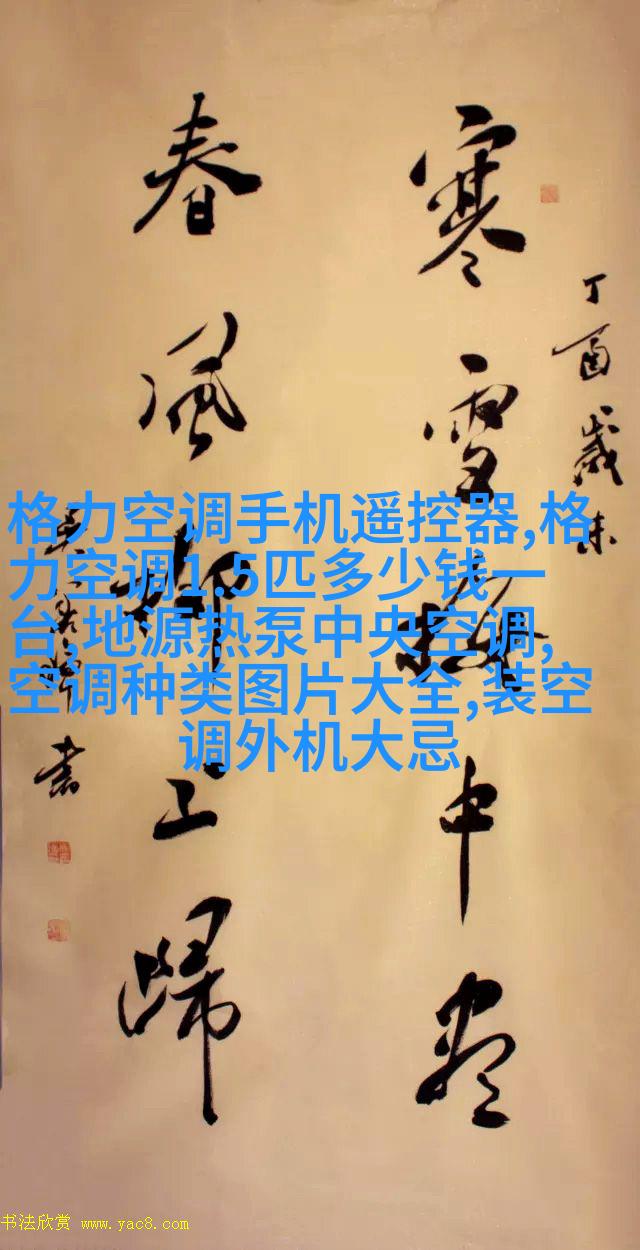 丁酉岁末
寒雪梅中尽
春風柳上歸
书
格力空调手机遥控器,格
力空调1.5匹多少钱一
台,地源热泵中央空调,
空调种类图片大全,装空
调外机大忌
书法欣赏 www.yac8.com